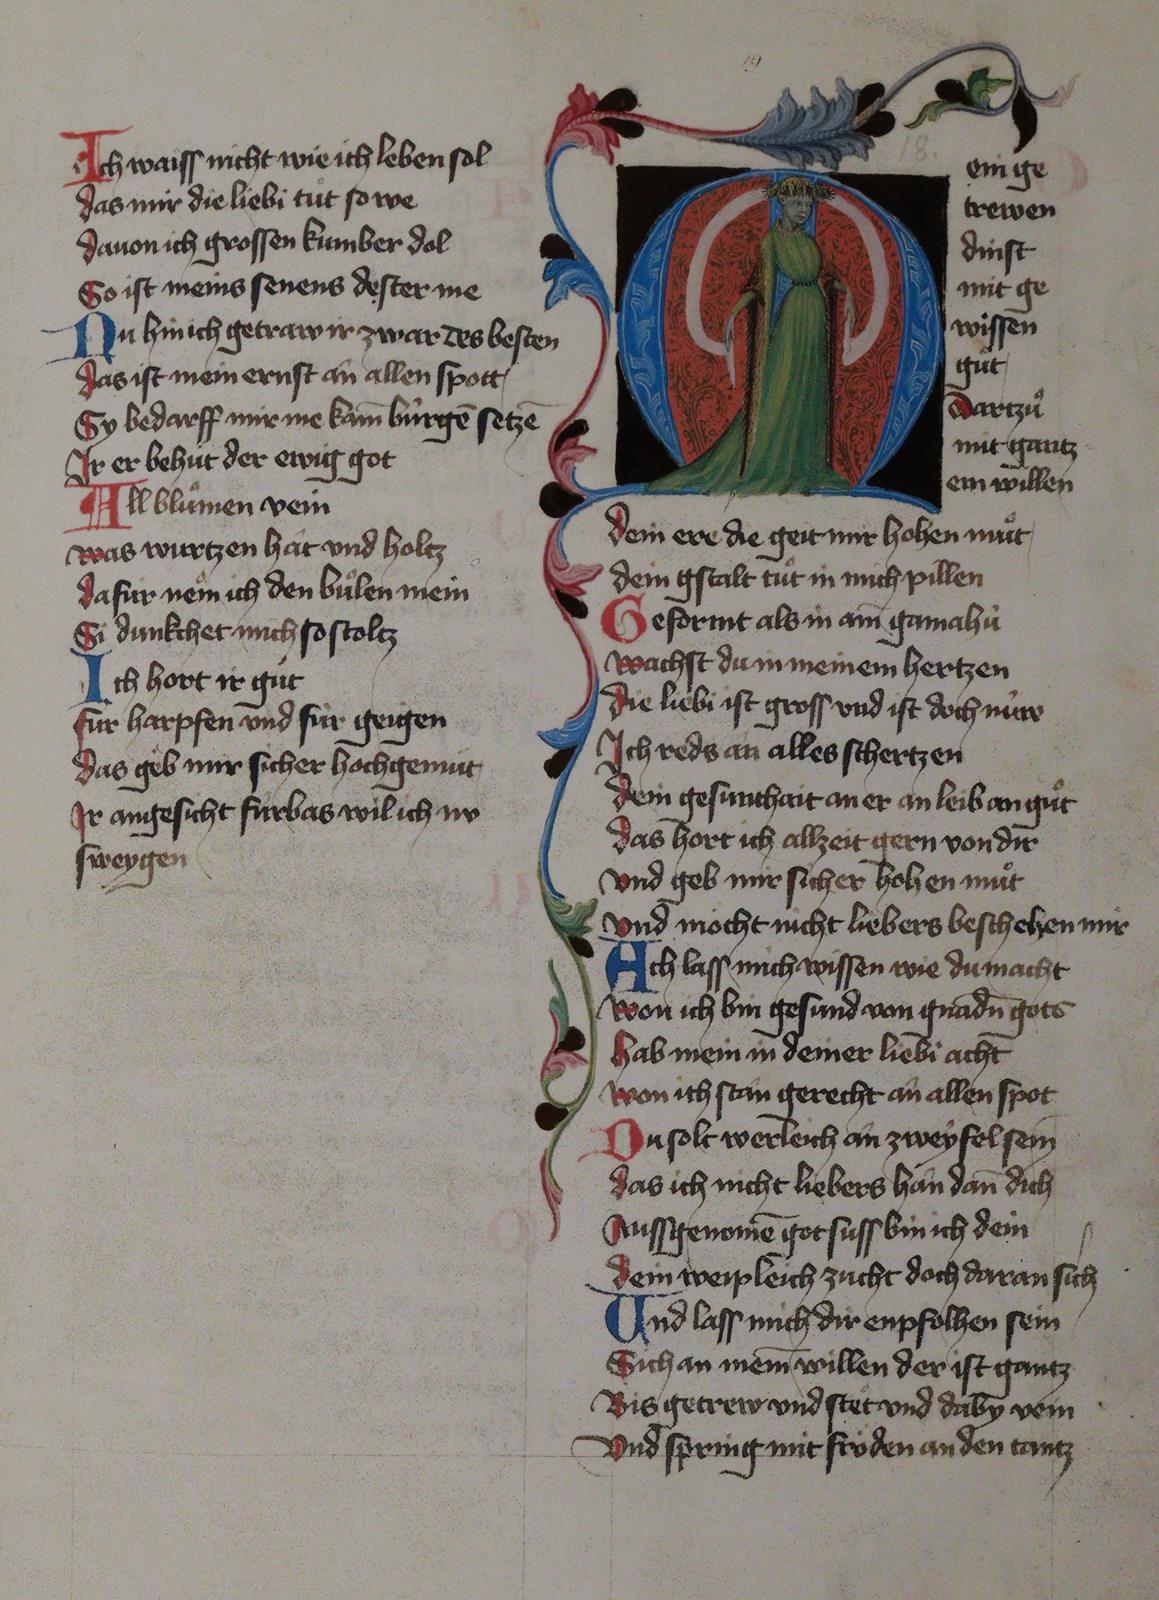 Ich waiss nicht wie ich leben sol
das mir die liebi tuͦt so we
dauon ich grossen kumber dol
So ist meins senens dester me
Nu hin ich getraw ir zwar des besten
das ist mein ernst an allen spott
Sy bedarff mir me kain̄ búrgē setzē
Ir er behut der ewig got
All bluͦmen vein
was wurtzen hat vnd holtz
dafúr nem ich den buͦlen mein
Si dunkchet mich so stoltz
Ich hort ir guͦt
fúr harpfen vnd fúr geigen
das geb mir sicher hochgemuͦt
Ir angesicht fúrbas wil ich nv
sweygen
18.
Mein ge
trewen
dinst
mit ge
wissen
guͦt
dartzuͦ
mit gantz
em willen
dein ere die geit mir hohen muͦt
dein gstalt tuͦt in mich pillen
Geformt als in aim̄ gamahú
wachst du in meinem hertzen
die liebi ist gross vnd ist doch núw
Ich reds an alles schertzen
Dein gesunthait an er an leib an guͦt
das hort ich allzeit gern von dir
vnd geb mir sicher hohen muͦt
vnd mocht nicht liebers beschehen mir
Ach lass mich wissen wie du macht
won ich bin gesund von gnadn̄ gots
hab mein in deiner liebi acht
won ich stan gerecht an allen spot
Du solt werleich an zweyfel sein
das ich nicht liebers han dan̄ dich
Aussgenomē got suss bin ich dein
dein weipleich zucht doch daran sich
Und lass mich dir enpfolhen sein
Sich an mein̄ willen der ist gantz
Bis getrew vnd stet vnd daby vein
Vnd spring mit froͤden an den tantz